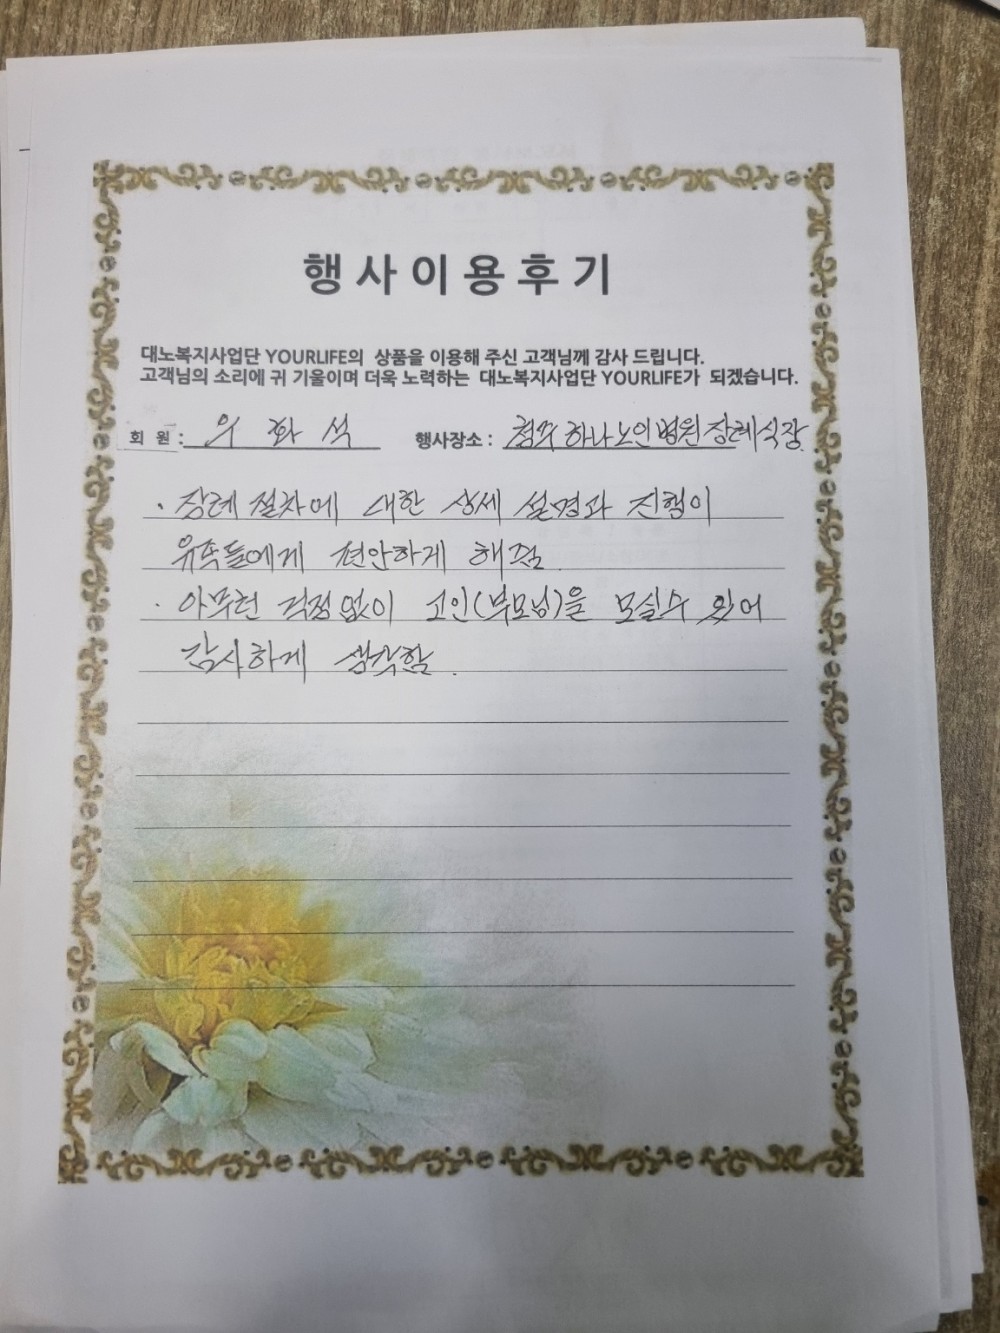 행사이용후기
대노복지사업단 YOURLIFE의 상품을 이용해 주신 고객님께 감사 드립니다.
고객님의 소리에 귀 기울이며 더욱 노력하는 대노복지사업단 YOURLIFE가 되겠습니다.
회 원 : 우 화 석 행사장소 : 청주 하나노인병원장례식장
· 장례 절차에 대한 상세 설명과 진행이
유족들에게 편안하게 해줌.
· 아무런 걱정없이 고인(부모님)을 모실수 있어
감사하게 생각함.